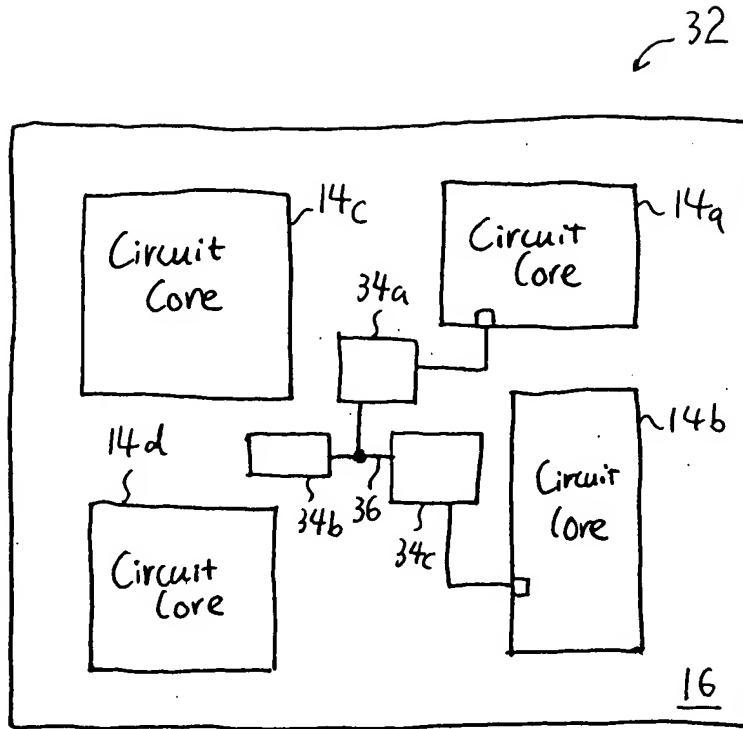 32
14c
Circuit
Core
14a
Circuit
Core
34a
14b
Circuit
Core
14d
34b
36
34c
Circuit
Core
16